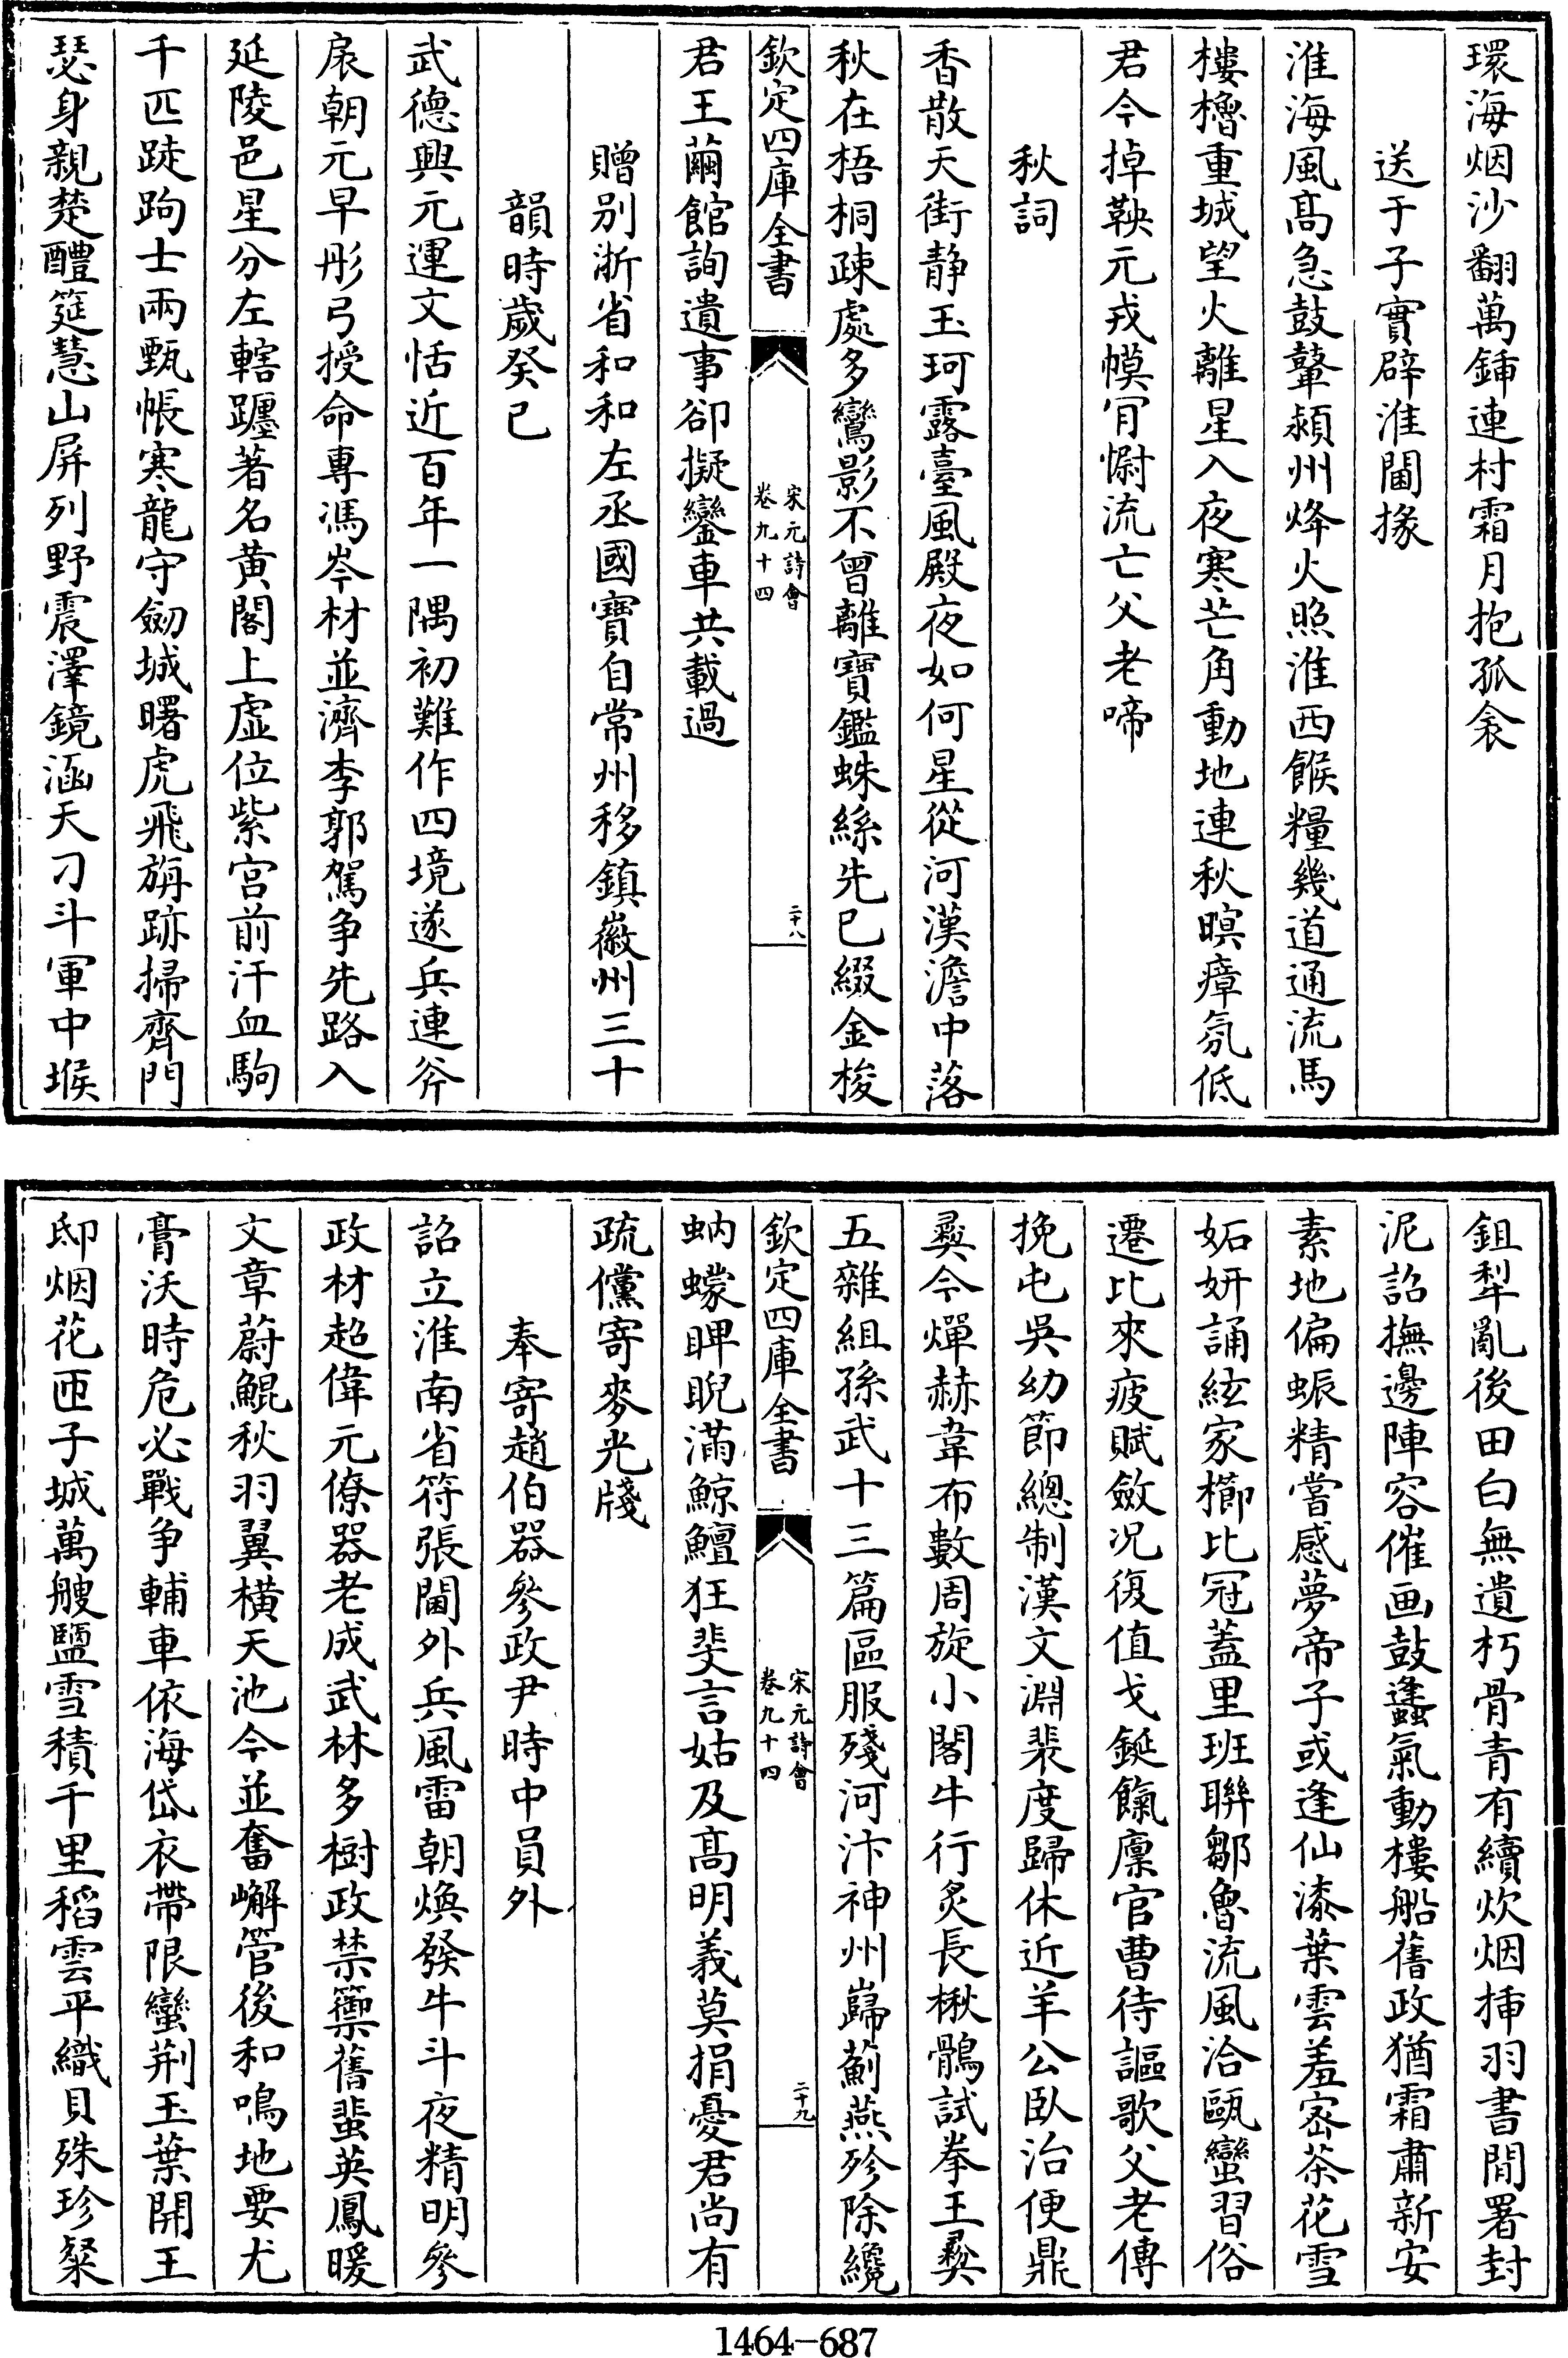 環海烟沙翻萬鍤連村霜月抱孤衾
送于子實辟淮閫掾
淮海風髙急鼓鼙潁州烽火照淮西餱糧幾道通流馬
樓櫓重城望火離星入夜寒芒角動地連秋暝瘴氛低
君今掉鞅元戎幙肎慰流亡父老啼
秋詞
香散天街静玉珂露臺風殿夜如何星從河漢澹中落
秋在梧桐疎處多鸞影不曾離寶鑑蛛絲先已綴金梭
欽定四庫全書
宋元詩會
卷九十四
二十八
君王繭館詢遺事卻擬鑾車共載過
贈别浙省和和左丞國寶自常州移鎮徽州三十
韻時歲癸已
武德興元運文恬近百年一隅初難作四境遂兵連斧
扆朝元早彤弓授命專馮岑材並濟李郭駕争先路入
延陵邑星分左轄躔著名黄閣上虚位紫宫前汗血駒
千匹跿跔士兩甄帳寒龍守劒城曙虎飛旃跡掃齊門
瑟身親楚醴筵慧山屏列野震澤鏡涵天刁斗軍中堠
鉏犁亂後田白無遺朽骨青有續炊烟揷羽書間署封
泥詔撫邊陣容催画鼓蓬氣動樓船舊政猶霜肅新安
素地偏蜧精嘗感夢帝子或逢仙漆葉雲羞宻茶花雪
妬妍誦絃家櫛比冠蓋里班聨鄒魯流風洽甌蠻習俗
遷比來疲賦斂况復值戈鋋餼廪官曹待謳歌父老傳
挽屯吳幼節總制漢文淵裴度歸休近羊公臥治便鼎
彞今燀赫韋布數周旋小閤牛行炙長楸鶻試拳王彞
五雜組孫武十三篇區服殘河汴神州歸薊燕殄除纔
欽定四庫全書
宋元詩會
卷九十四
二十九
蚋蠓睥睨滿鯨鱣狂斐言姑及髙明義莫捐憂君尚有
疏儻寄麥光牋
奉寄趙伯器參政尹時中員外
詔立淮南省符張閫外兵風雷朝煥發牛斗夜精明參
政材超偉元僚器老成武林多樹政禁籞舊蜚英鳳暖
文章蔚鯤秋羽翼横天池今並奮嶰管後和鳴地要尤
膏沃時危必戰争輔車依海岱衣帶限蠻荆玉葉開王
邸烟花匝子城萬艘鹽雪積千里稻雲平織貝殊珍粲
1464-687